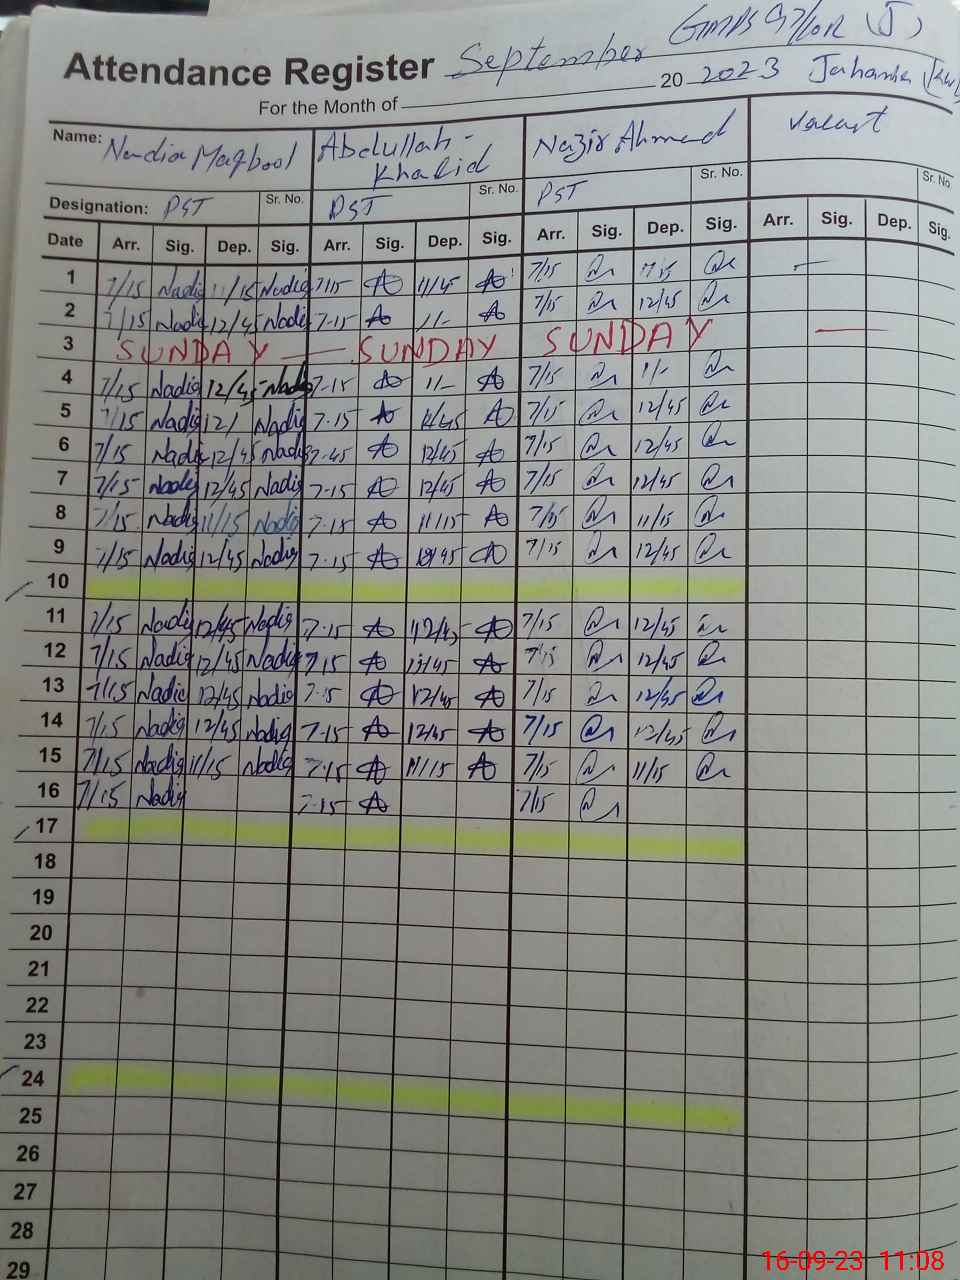 Attendance Register September
For the Month of 20 2023
Name: Nadia Maqbool Abdullah - Khalid Nazir Ahmed Vacant
Designation: PST Sr. No. PST Sr. No. PST Sr. No. Sr. No.
Date Arr. Sig. Dep. Sig. Arr. Sig. Dep. Sig. Arr. Sig. Dep. Sig. Arr. Sig. Dep. Sig.
1 7/15 Nadia 11/15 Nadia 7/15 11/45 7/15
2 7/15 Nadia 12/45 Nadia 7-15 11/- 7/15 12/45
3 SUNDAY — SUNDAY SUNDAY —
4 7/15 Nadia 12/45 Nadia 7-15 11/- 7/15 11/-
5 7/15 Nadia 12/ Nadia 7-15 7/15 12/45
6 7/15 Nadia 12/45 Nadia 7-45 12/45 7/15 12/45
7 7/15 Nadia 12/45 Nadia 7-15 12/45 7/15 12/45
8 7/15 Nadia 11/15 Nadia 7-15 11/15 7/15 11/15
9 7/15 Nadia 12/45 Nadia 7-15 7/15 12/45
10
11 7/15 Nadia 12/45 Nadia 7-15 12/45 7/15 12/45
12 7/15 Nadia 12/45 Nadia 7-15 7/15 12/45
13 7/15 Nadia 12/45 Nadia 7-15 12/45 7/15 12/45
14 7/15 Nadia 12/45 Nadia 7-15 12/45 7/15 12/45
15 7/15 Nadia 11/15 Nadia 7-15 11/15 7/15 11/15
16 7/15 Nadia 7-15 7/15
17
18
19
20
21
22
23
24
25
26
27
28
29
16-09-23 11:08